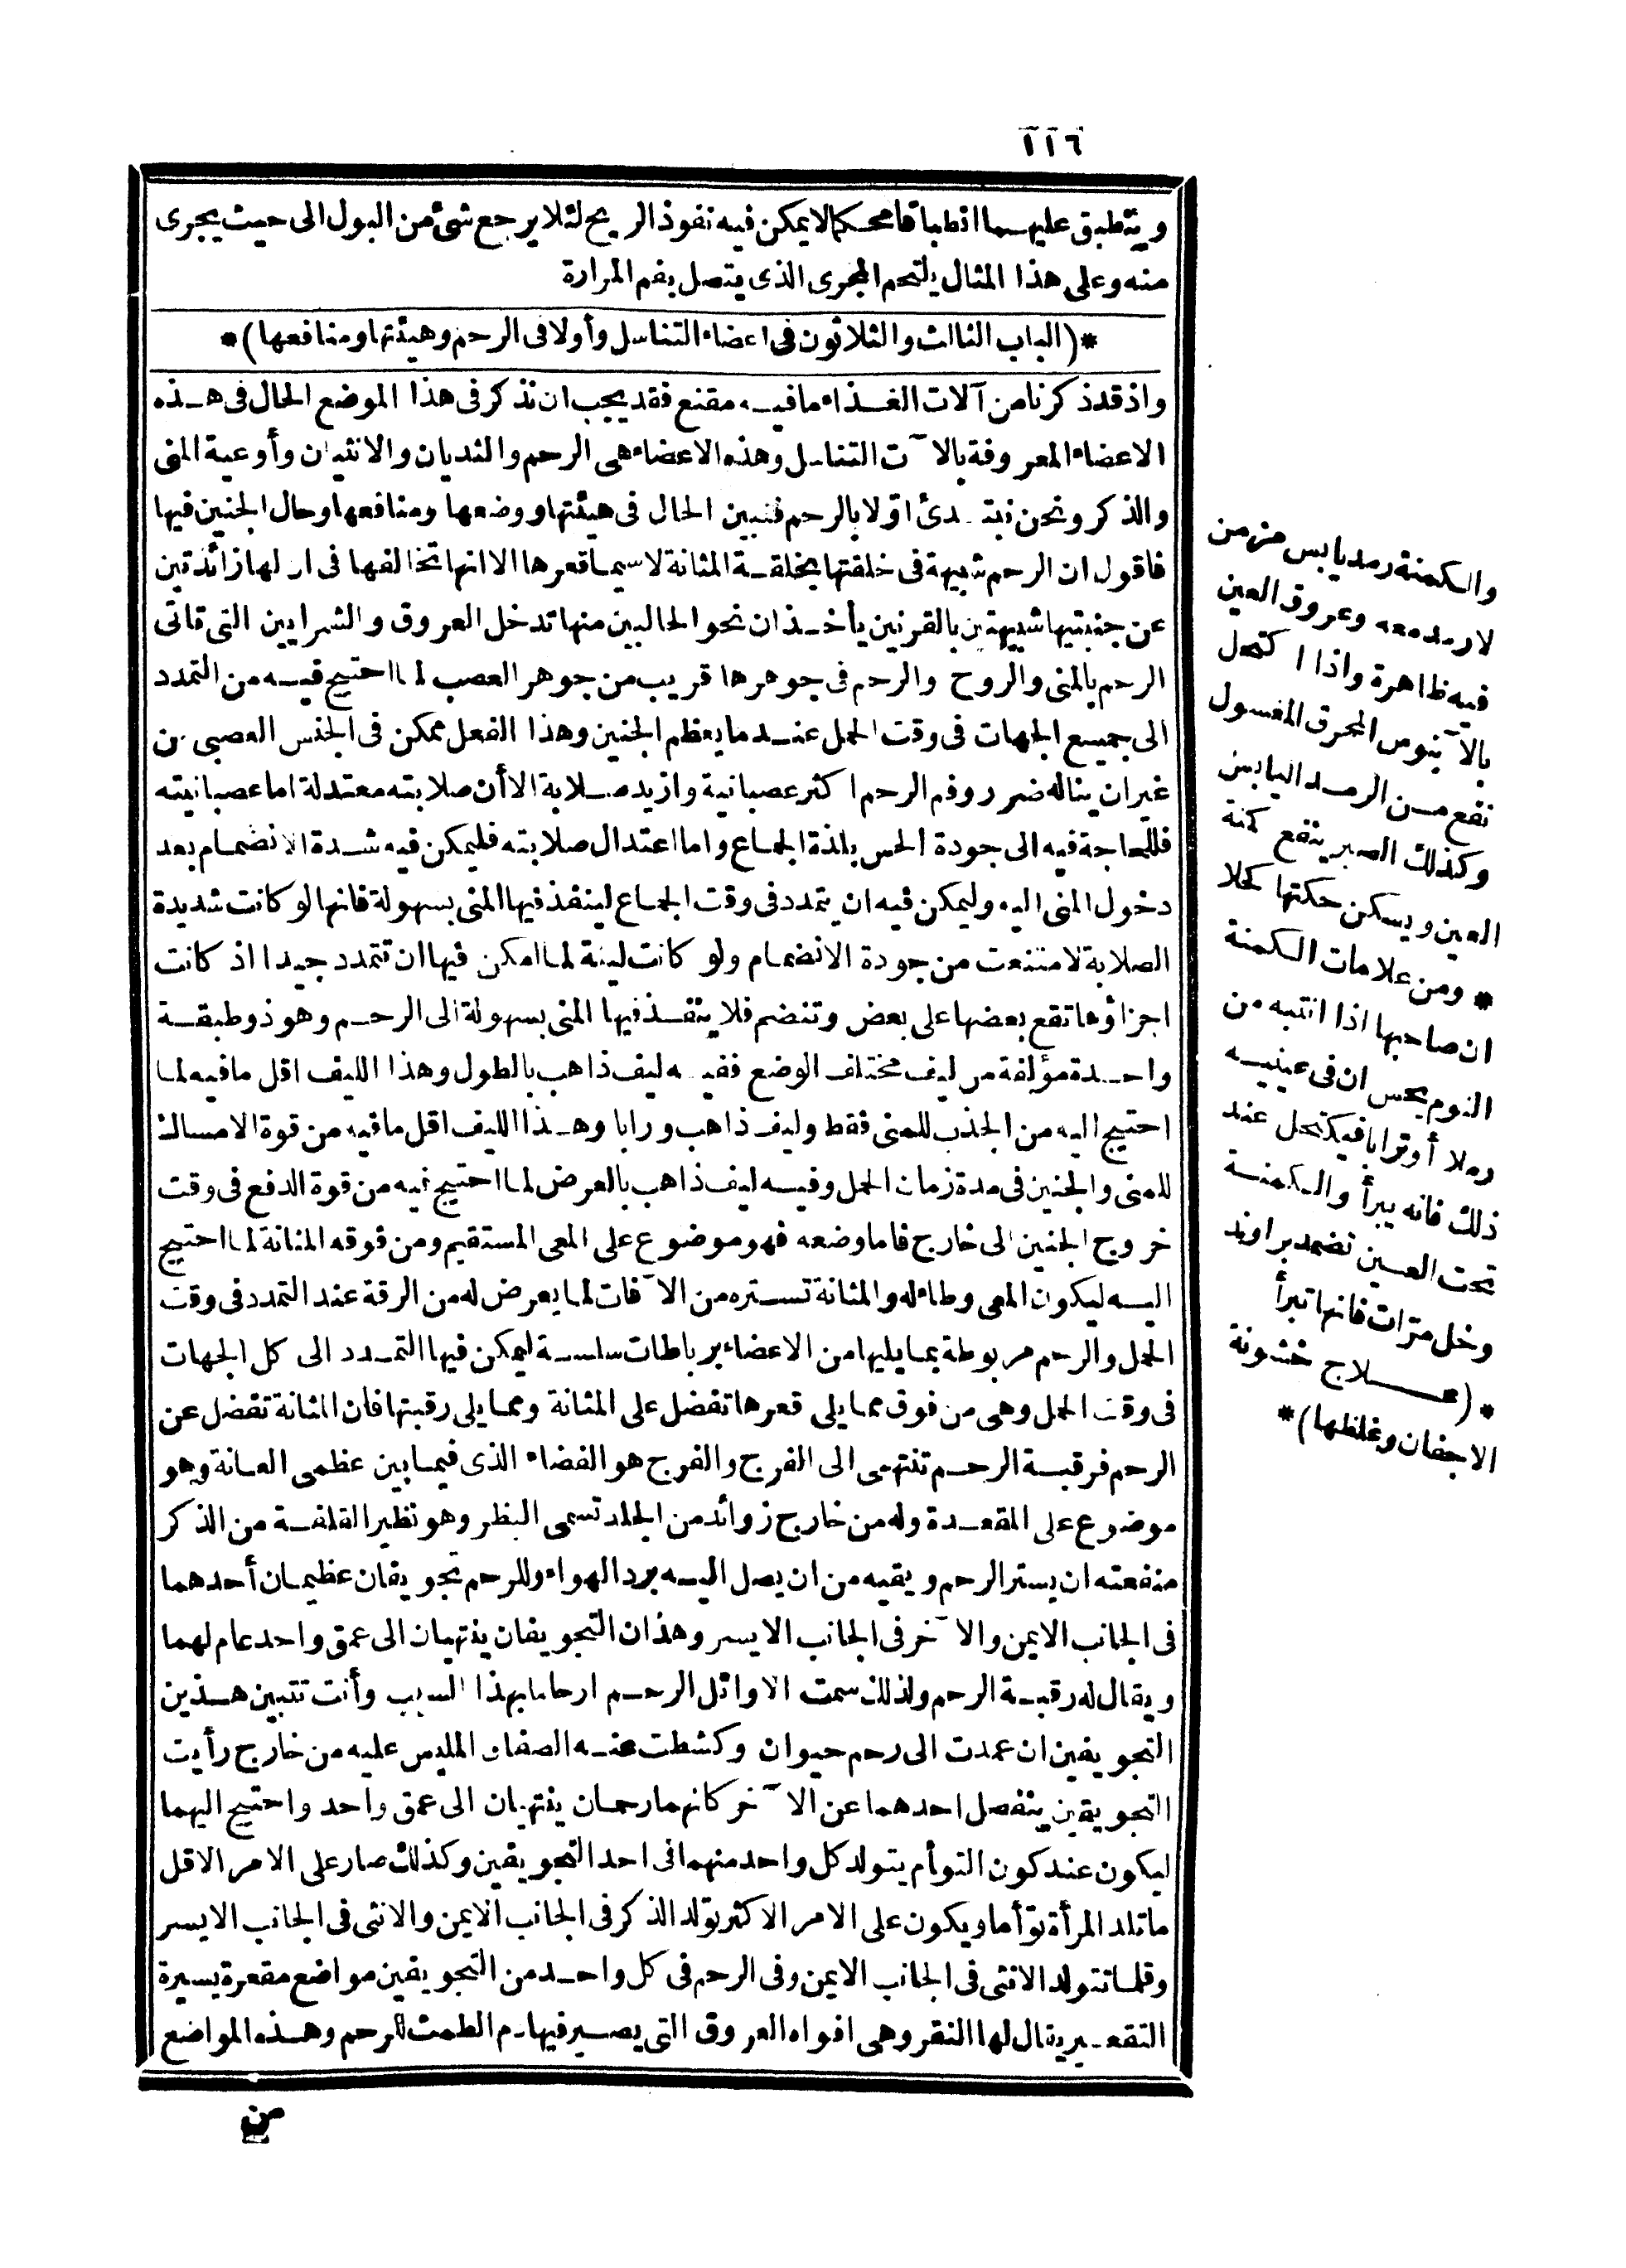 ١١٦
وينطبق عليهما انطباقا محكما لا يمكن فيه نفوذ الريح لئلا يرجع شئ من البول الى حيث يجرى
منه وعلى هذا المثال يلتحم المجرى الذى يتصل بفم المرارة
*(الباب الثالث والثلاثون فى اعضاء التناسل وأولا فى الرحم وهيئتها ومنافعها)*
واذ قد ذكرنا من آلات الغذاء ما فيه مقنع فقد يجب ان نذكر فى هذا الموضع الحال فى هذه
الاعضاء المعروفة بالآت التناسل وهذه الاعضاء هى الرحم والثديان والانثيان وأوعية المنى
والذكر ونحن نبتدئ اوّلا بالرحم فنبين الحال فى هيئتها ووضعها ومنافعها وحال الجنين فيها
فاقول ان الرحم شبيهة فى خلقتها بخلقة المثانة لا سيما قعرها الا انها تخالفها فى ان لها زائدتين
عن جنبتيها شبيهتين بالقرنين يأخذان نحو الحالبين منها تدخل العروق والشرايين التى تاتى
الرحم بالمنى والروح والرحم فى جوهرها قريب من جوهر العصب لما احتيج فيه من التمدد
الى جميع الجهات فى وقت الحمل عند ما يعظم الجنين وهذا الفعل ممكن فى الجنس العصبى من
غير ان يناله ضرر وفم الرحم اكثر عصبانية وازيد صلابة الا أن صلابته معتدلة اما عصبانيته
فللحاجة فيه الى جودة الحس بلذة الجماع واما اعتدال صلابته فليمكن فيه شدة الانضمام بعد
دخول المنى اليه وليمكن فيه ان يتمدد فى وقت الجماع لينفذ فيها المنى بسهولة فانها لو كانت شديدة
الصلابة لامتنعت من جودة الانضمام ولو كانت لينة لما امكن فيها ان تتمدد جيدا اذ كانت
اجزاؤها تقع بعضها على بعض وتنضم فلا ينفذ فيها المنى بسهولة الى الرحم وهو ذو طبقة
واحدة مؤلفة من ليف مختلف الوضع ففيه ليف ذاهب بالطول وهذا الليف اقل ما فيه لما
احتيج اليه من الجذب للمنى فقط وليف ذاهب ورابا وهذا الليف اقل ما فيه من قوة الامساك
للمنى والجنين فى مدة زمان الحمل وفيه ليف ذاهب بالعرض لما احتيج فيه من قوة الدفع فى وقت
خروج الجنين الى خارج فاما وضعه فهو موضوع على المعى المستقيم ومن فوقه المثانة لما احتيج
اليه ليكون المعى وطاء له والمثانة تستره من الآفات لما يعرض له من الرقة عند التمدد فى وقت
الحمل والرحم مربوطة بما يليها من الاعضاء برباطات سلسة ليمكن فيها التمدد الى كل الجهات
فى وقت الحمل وهى من فوق مما يلى قعرها تفضل على المثانة ومما يلى رقبتها فان المثانة تفضل عن
الرحم فرقبة الرحم تنتهى الى الفرج والفرج هو الفضاء الذى فيما بين عظمى العانة وهو
موضوع على المقعدة وله من خارج زوائد من الجلد تسمى البظر وهو نظير القلفة من الذكر
منفعته ان يستر الرحم ويقيه من ان يصل اليه برد الهواء وللرحم تجويفان عظيمان أحدهما
فى الجانب الايمن والآخر فى الجانب الايسر وهذان التجويفان ينتهيان الى عمق واحد عام لهما
ويقال له رقبة الرحم ولذلك سمت الاوائل الرحم ارحاما بهذا السبب وأنت تتبين هذين
التجويفين ان عمدت الى رحم حيوان وكشطت عنه الصفاق الملبس عليه من خارج رأيت
التجويفين ينفصل احدهما عن الآخر كانهما رحمان ينتهيان الى عمق واحد واحتيج اليهما
ليكون عند كون التوأم يتولد كل واحد منهما فى احد التجويفين وكذلك صار على الامر الاقل
ما تلد المرأة توّأما ويكون على الامر الاكثر تولد الذكر فى الجانب الايمن والانثى فى الجانب الايسر
وقلما تتولد الانثى فى الجانب الايمن وفى الرحم فى كل واحد من التجويفين مواضع مقعرة يسيرة
التقعير يقال لها النقر وهى افواه العروق التى يصير فيها دم الطمث للرحم وهذه المواضع
من
والكمنة رمد يابس مزمن
لا رمد معه وعروق العين
فيه ظاهرة واذا اكتحل
بالآبنوس المحرق المغسول
نفع من الرمد اليابس
وكذلك الصبر ينفع كمنة
العين ويسكن حكتها كحلا
* ومن علامات الكمنة
ان صاحبها اذا انتبه من
النوم يحس ان فى عينيه
رملا أو ترابا فيكتحل عند
ذلك فانه يبرأ والكمنة
تحت العين تضمد براوند
وخل مرّات فانها تبرأ
*(علاج خشونة
الاجفان وغلظها)*